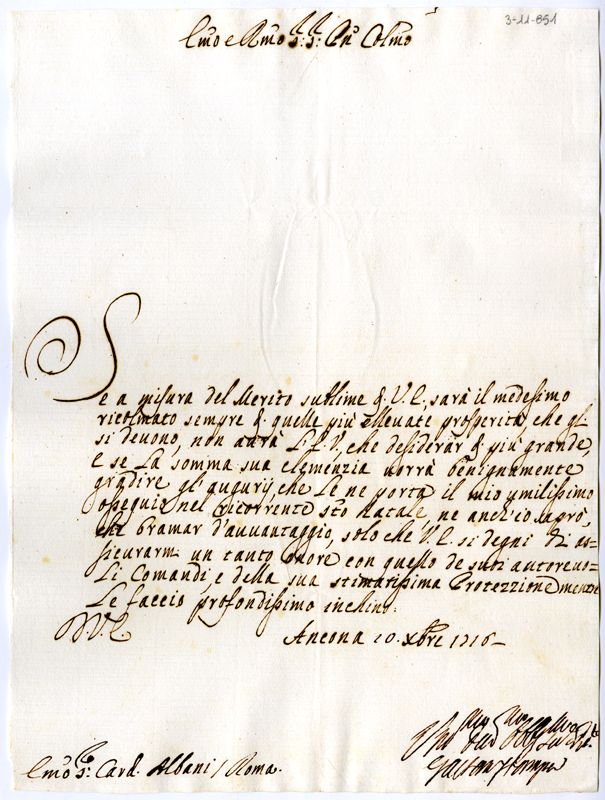 3-11-851
Emo e Rmo S: S: Pñ Colmo
Se a misura del Merito sublime d. V. E., sarà il medesimo
ricolmato sempre d. quelle più ellevate prosperità, che gli
si devono, non aurà L'E.V., che desiderar d. più grande,
E se La somma sua clemenzia uorrà benignamente
gradire gl'augurij, che Le ne porta il mio umilissimo
ossequio nel ricorrente sto Natale, ne anch'io saprò,
che bramar d'auuantaggio, solo che V.E. si degni di as=
sicurarmi un tanto onore con quello de suoi autoreuo=
Li Comandi, e della sua stimatissima Protezzione mentre
Le faccio profondissimo inchino.
D.V.E. Ancona 10. Xbre 1716
Emo S: Card. Albani / Roma.